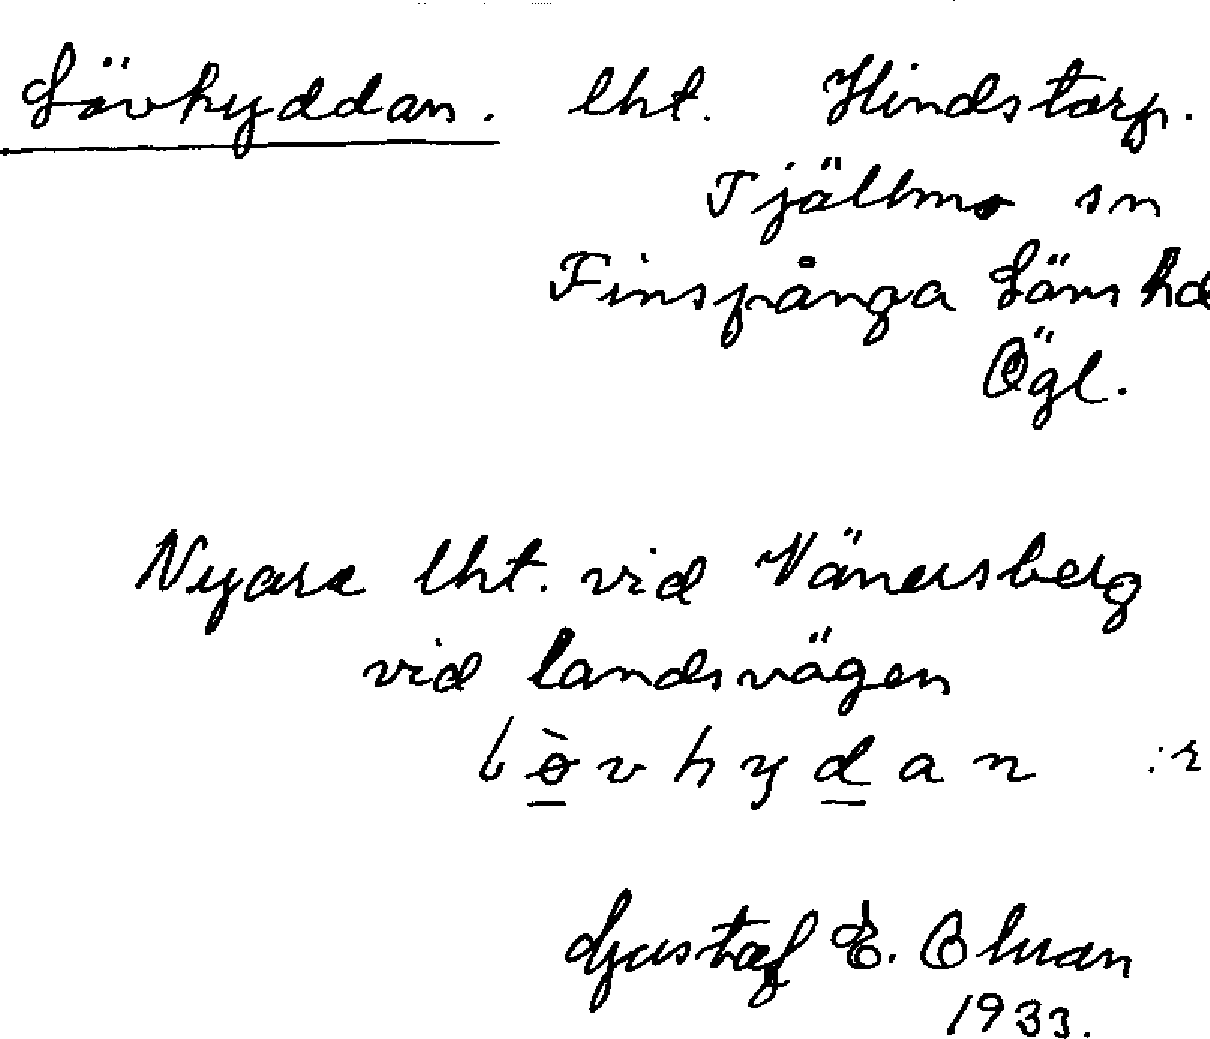 Lövhyddan. lht. Hindstorp.
Tjällmo sn
Finspånga Läns hd
Ögl.
Nyare lht. vid Vänersberg
vid landsvägen
lö̀vhydan :r
Gustaf E. Olman
1933.